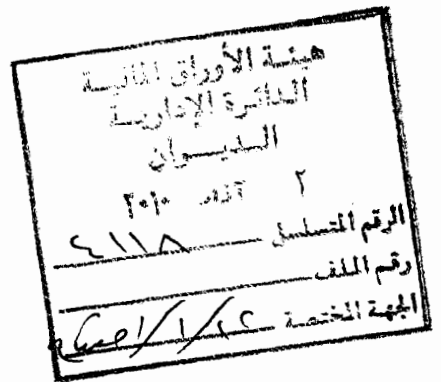 هيئة الأوراق المالية
الدائرة الإدارية
الديوان
٢ آذار ٢٠١٠
الرقم المتسلسل ٤١١٨
رقم الملف
الجهة المختصة